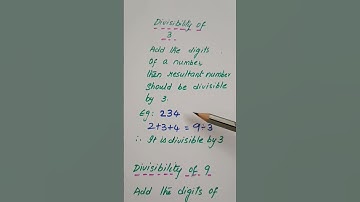 Divisibility of
3
Add the digits
of a number,
then resultant number
should be divisible
by 3.
Eg: 234
2+3+4 = 9÷3
∴ It is divisible by 3
Divisibility of 9
Add the digits of